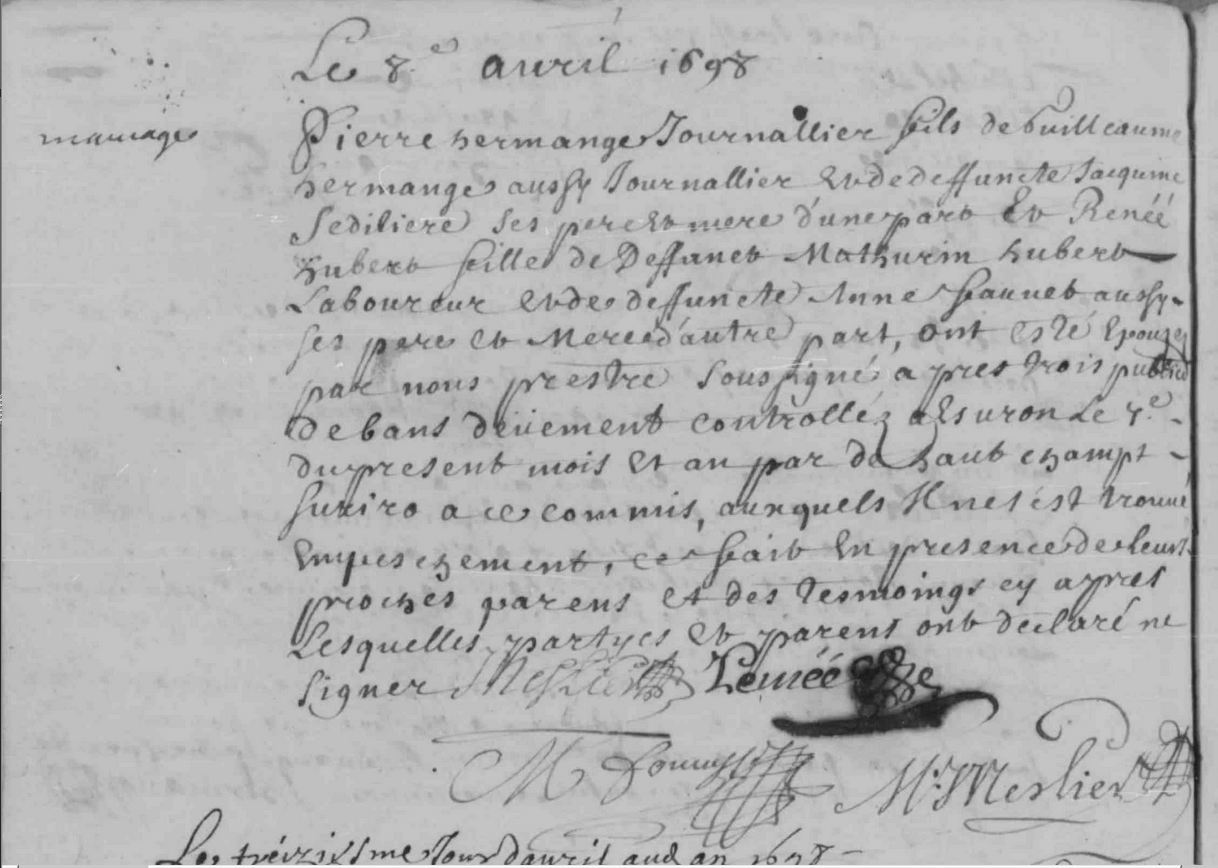 Le 8e avril 1698
mariage
Pierre hermange Journallier fils de Guilleaume
hermange aussy Journallier et de deffuncte Jacquine
Sediliere ses pere et mere d'une part et Renée
hubert fille de Deffunct Mathurin hubert
Laboureur et de deffuncte Anne aussy
ses pere et Mere d'autre part, ont esté Epousez
par nous prestre soussigné apres trois public
de bans deüement controllés a Esuron Le 7e
du present mois et an par de haut champt
suriro a ce commis, auxquels Il ne s'est trouvé
Empeschement, ce fait en presence de leurs
proches parens et des tesmoings cy apres
Lesquelles partyes et parens ont declaré ne
signer Meslier Lemée
M Meslier
Le treiziesme Jour d'avril aud an 1698